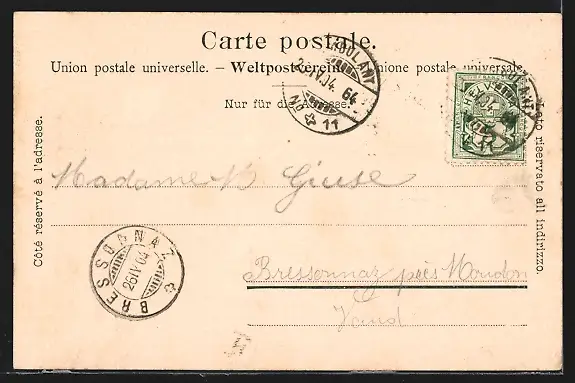 Carte postale.
Union postale universelle. – Weltpostverein. – Unione postale universale.
Nur für die Adresse.
AMBULANT
26 IV 04. 64
No 11
HELVETIA
Côté réservé à l'adresse.
Lato riservato all indirizzo.
Madame
BRESSONNAZ
26 IV 04
Bressonnaz près Moudon
Vaud